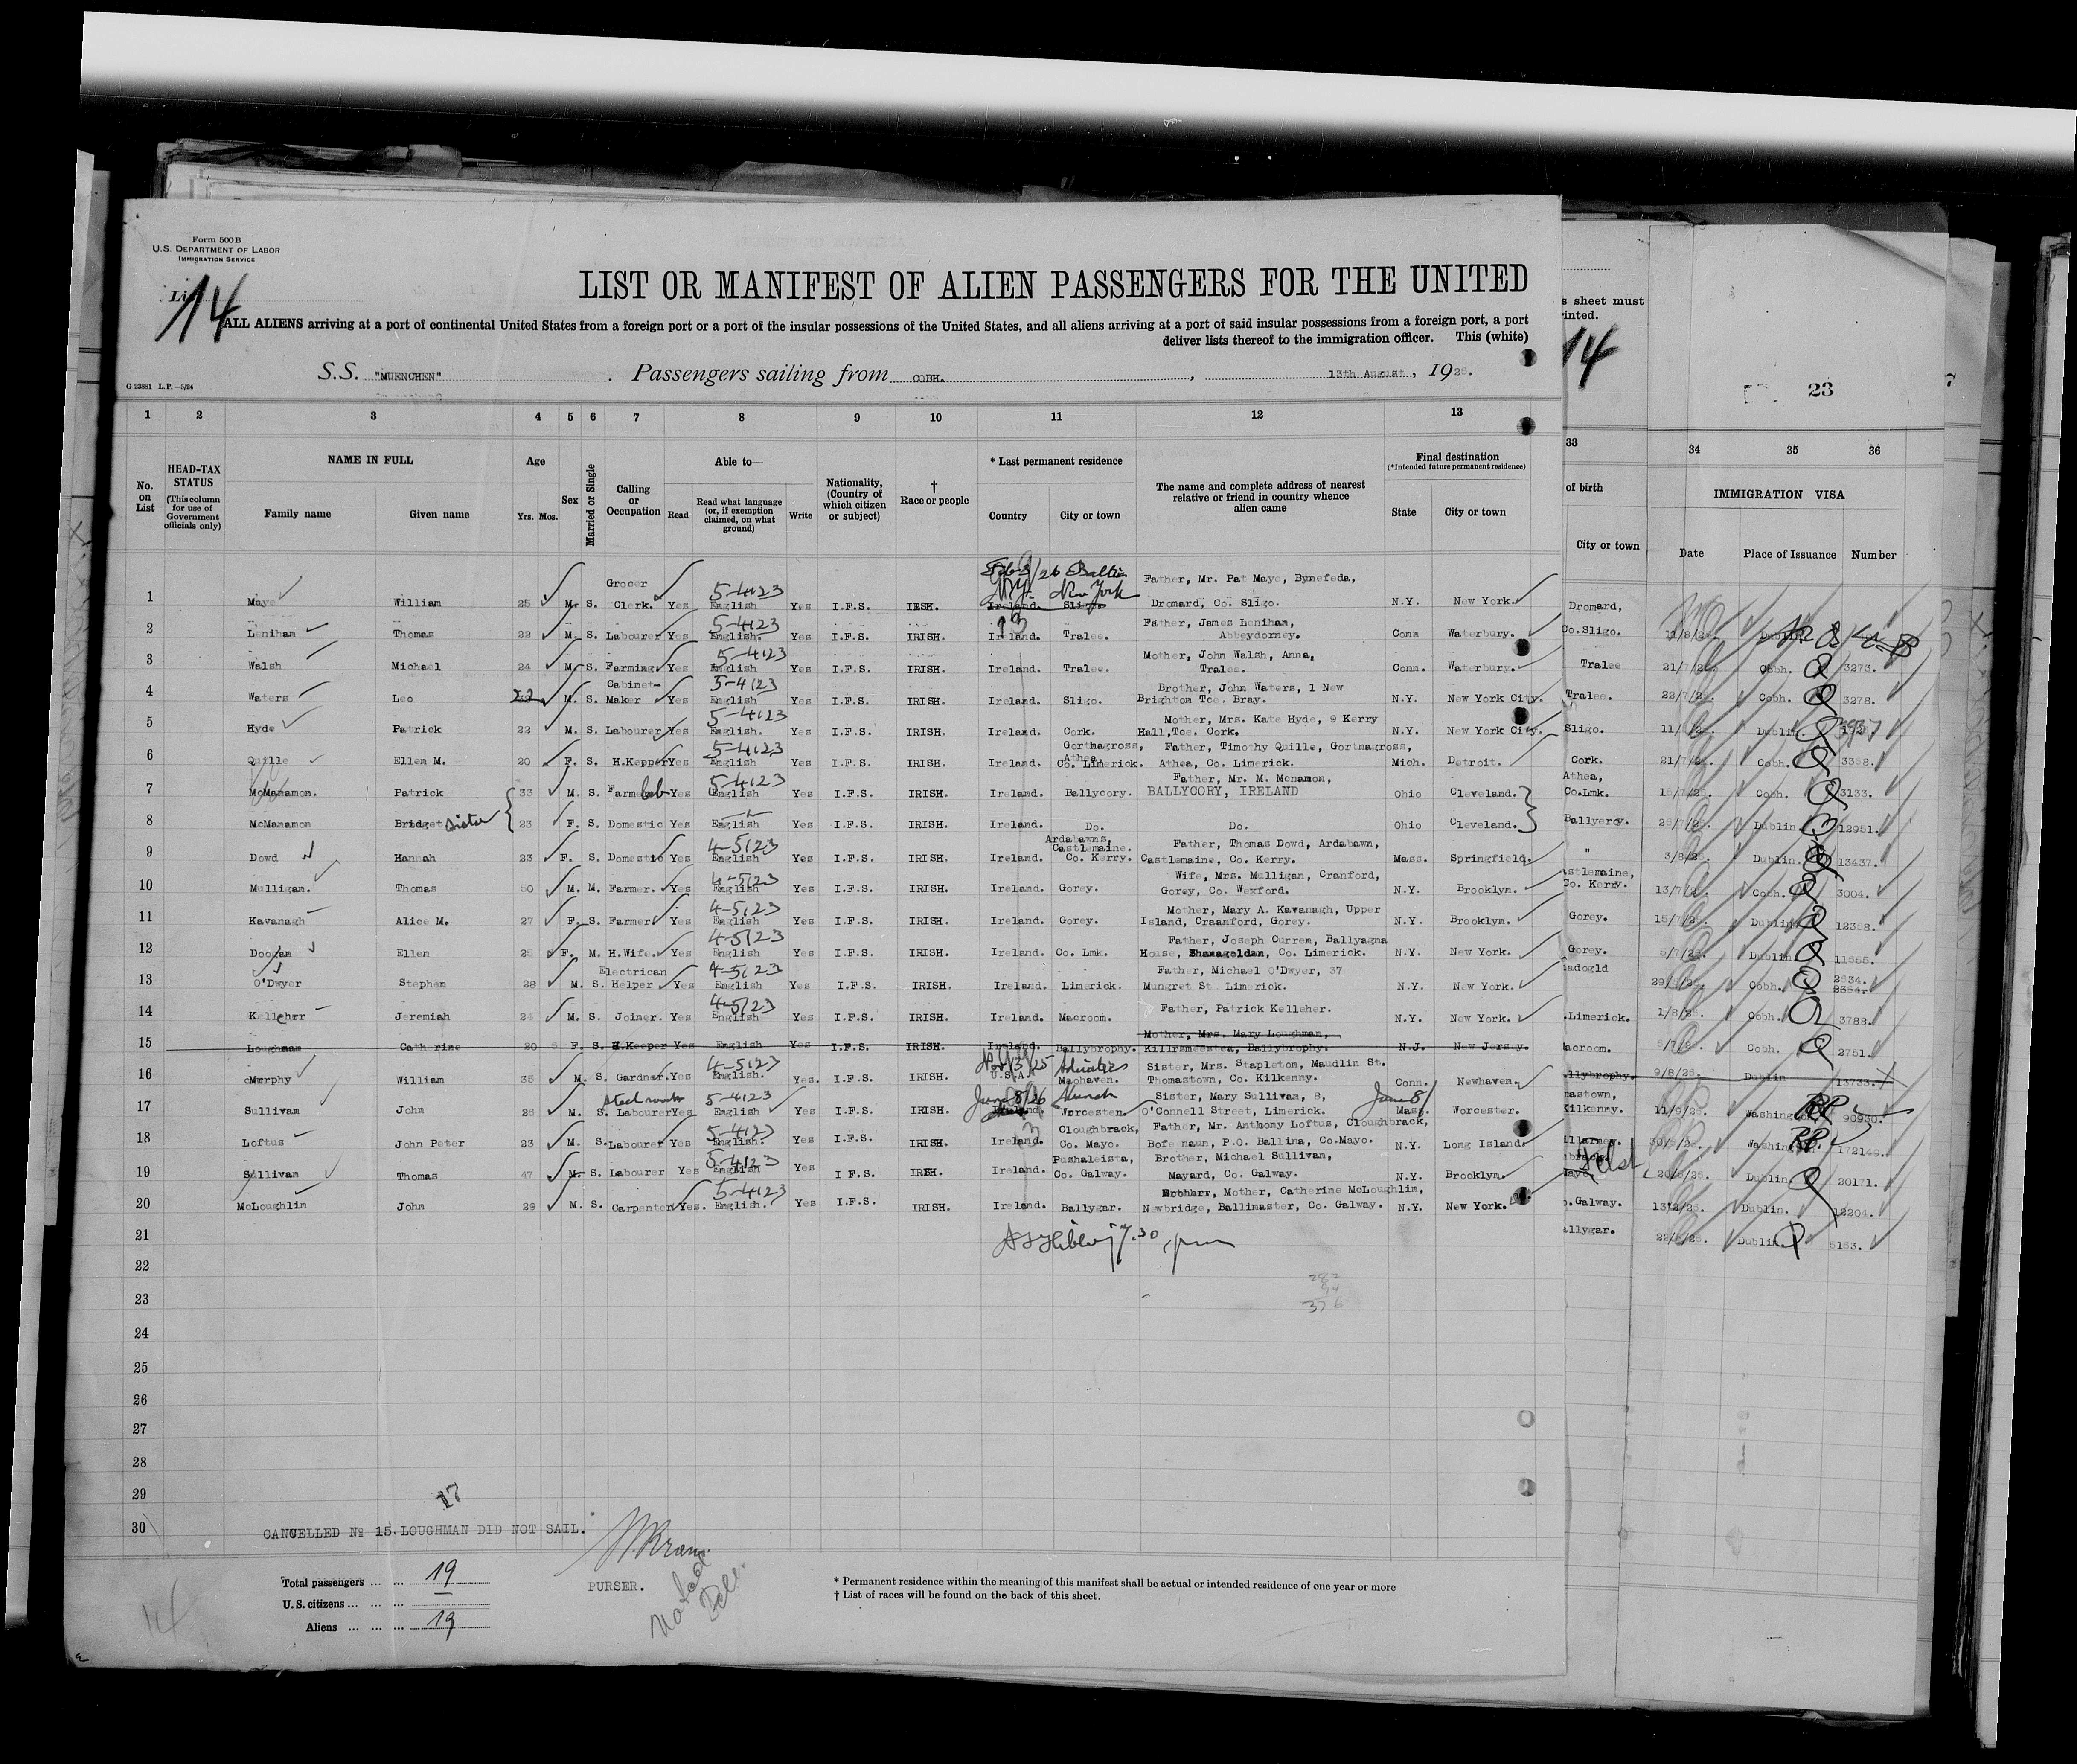 Form 500B
U.S. DEPARTMENT OF LABOR
IMMIGRATION SERVICE
14
LIST OR MANIFEST OF ALIEN PASSENGERS FOR THE UNITED
ALL ALIENS arriving at a port of continental United States from a foreign port or a port of the insular possessions of the United States, and all aliens arriving at a port of said insular possessions from a foreign port, a port
deliver lists thereof to the immigration officer. This (white)
s sheet must
rinted.
14
G 23881 L.P.—5/24
S.S. "MUENCHEN" . Passengers sailing from COBH. , 13th August, 19
23
1 2 3 4 5 6 7 8 9 10 11 12 13
33 34 35 36
No. on List
HEAD-TAX STATUS
(This column for use of Government officials only)
NAME IN FULL
Family name Given name
Age
Yrs. Mos.
Sex
Married or Single
Calling or Occupation
Able to—
Read
Read what language (or, if exemption claimed, on what ground)
Write
Nationality, (Country of which citizen or subject)
† Race or people
* Last permanent residence
Country City or town
The name and complete address of nearest relative or friend in country whence alien came
Final destination
(*Intended future permanent residence)
State City or town
of birth
City or town
IMMIGRATION VISA
Date Place of Issuance Number
1 Maye William 25 M. S. Grocer Clerk. Yes English Yes I.F.S. IRSH. Ireland. Sligo New York Father, Mr. Pat Maye, Bynefeda, Dromard, Co. Sligo. N.Y. New York. Dromard, Co.Sligo.
2 Leniham Thomas 22 M. S. Labourer Yes 5-4123 English. Yes I.F.S. IRISH. Ireland. Tralee. Father, James Leniham, Abbeydorney. Conn Waterbury. Tralee
3 Walsh Michael 24 M. S. Farming. Yes 5-4123 English Yes I.F.S. IRISH. Ireland. Tralee. Mother, John Walsh, Anna, Tralee. Conn. Waterbury. Tralee. Cobh. 3273.
4 Waters Leo 22 M. S. Cabinet-Maker Yes 5-4123 English Yes I.F.S. IRISH. Ireland. Sligo. Brother, John Waters, 1 New Brighton Tce. Bray. N.Y. New York City. Sligo. Cobh. 3278.
5 Hyde Patrick 22 M. S. Labourer Yes 5-4123 English. Yes I.F.S. IRISH. Ireland. Cork. Mother, Mrs. Kate Hyde, 9 Kerry Hall,Tce. Cork. N.Y. New York City. Cork. Dublin
6 Quille Ellen M. 20 F. S. H.Kepper Yes 5-4123 English Yes I.F.S. IRISH. Ireland. Gorthagross, Athea, Co. Limerick. Father, Timothy Quille, Gortnagross, Athea, Co. Limerick. Mich. Detroit. Athea, Co.Lmk. Cobh. 3368.
7 McManamon. Patrick 33 M. S. Farm Yes 5-4123 English Yes I.F.S. IRISH. Ireland. Ballycory. Father, Mr. M. Mcnamon, BALLYCORY, IRELAND Ohio Cleveland. Ballyercy. Cobh. 3133.
8 McManamon Bridget Sister 23 F. S. Domestic Yes English Yes I.F.S. IRISH. Ireland. Do. Do. Ohio Cleveland. " Dublin 12951.
9 Dowd Hannah 23 F. S. Domestic Yes 4-5123 English Yes I.F.S. IRISH. Ireland. Ardatawns, Castlemaine. Co. Kerry. Father, Thomas Dowd, Ardabawn, Castlemaine, Co. Kerry. Mass. Springfield. astlemaine, Co. Kerry. Dublin. 13437.
10 Mulligan. Thomas 50 M. M. Farmer. Yes 4-5123 English Yes I.F.S. IRISH. Ireland. Gorey. Wife, Mrs. Mulligan, Cranford, Gorey, Co. Wexford. N.Y. Brooklyn. Gorey. Cobh. 3004.
11 Kavanagh Alice M. 27 F. S. Farmer Yes 4-5123 English Yes I.F.S. IRISH. Ireland. Gorey. Mother, Mary A. Kavanagh, Upper Island, Craanford, Gorey. N.Y. Brooklyn. Gorey. Dublin 12368.
12 Doogan Ellen 25 F. M. H.Wife. Yes 4-5123 English Yes I.F.S. IRISH. Ireland. Co. Lmk. Father, Joseph Curren, Ballyagna House, Shanagolden, Co. Limerick. N.Y. New York. Dublin
13 O'Dwyer Stephen 28 M. S. Electrican Helper Yes 4-5123 English Yes I.F.S. IRISH. Ireland. Limerick. Father, Michael O'Dwyer, 37 Mungret St. Limerick. N.Y. New York. .Limerick. Cobh. 2634.
14 Kelleher Jeremiah 24 M. S. Joiner. Yes 4-5123 English Yes I.F.S. IRISH. Ireland. Macroom. Father, Patrick Kelleher. N.Y. New York. acroom. Cobh. 3788.
15 Loughman Catherine 20 F. S. H.Keeper Yes English Yes I.F.S. IRISH. Ireland. Ballybrophy. Mother, Mrs. Mary Loughman, Ballybrophy. N.J. New Jersey. Cobh. 2751.
16 Murphy William 35 M. S. Gardner. Yes 4-5123 English. Yes. I.F.S. IRISH. U.S.A. Sister, Mrs. Stapleton, Maudlin St. Thomastown, Co. Kilkenny. Conn. Newhaven. 9/8/25. Dublin 13733.
17 Sullivan John 26 M. S. Labourer Yes 5-4123 English Yes I.F.S. IRISH. June 8/26 Worcester Sister, Mary Sullivan, 8, O'Connell Street, Limerick. Mass. Worcester. Kilkenny. 90930.
18 Loftus John Peter 23 M. S. Labourer Yes 5-4123 English. Yes I.F.S. IRISH. Ireland. Cloughbrack, Co. Mayo. Father, Mr. Anthony Loftus, Cloughbrack, Bofe naun, P.O. Ballina, Co.Mayo. N.Y. Long Island. 172149.
19 Sullivan Thomas 47 M. S. Labourer Yes 5-4123 English Yes I F.S. IRISH. Ireland. Pushaleista, Co. Galway. Brother, Michael Sullivan, Mayard, Co. Galway. N.Y. Brooklyn. Dublin 20171.
20 McLoughlin John 29 M. S. Carpenter Yes. 5-4123 English. Yes I.F.S. IRISH. Ireland. Ballygar. Mother, Catherine McLoughlin, Newbridge, Ballimaster, Co. Galway. N.Y. New York. o.Galway. Dublin. 12204.
21 allygar. Dublin 5153.
22
23
24
25
26
27
28
29
17
30 CANCELLED № 15. LOUGHMAN DID NOT SAIL.
Total passengers ... ... 19
U.S. citizens ... ... ...
Aliens ... ... ... 19
PURSER.
* Permanent residence within the meaning of this manifest shall be actual or intended residence of one year or more
† List of races will be found on the back of this sheet.
14